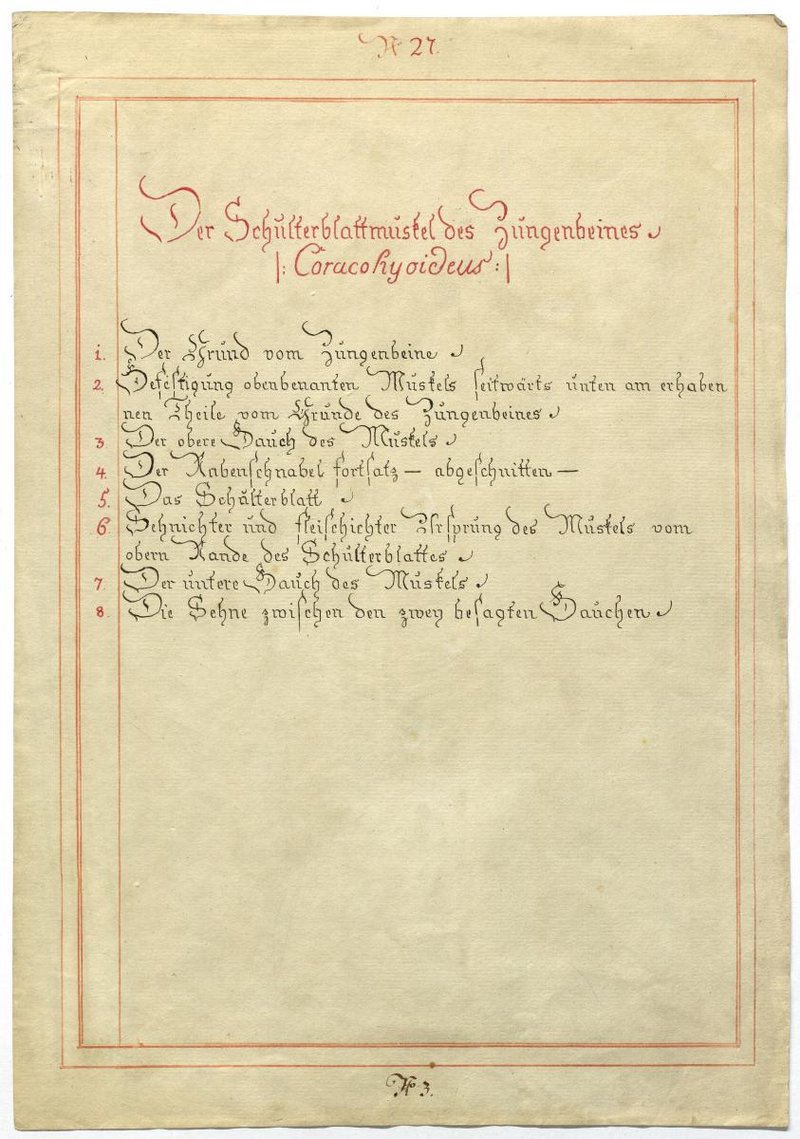 N 27.
Der Schulterblattmuskel des Zungenbeines
|: Coracohyoideus :|
1. Der Grund vom Zungenbeine
2. Befestigung obenbenanten Muskels seitwärts unten am erhaben
nen Theile vom Grunde des Zungenbeines
3. Der obere Bauch des Muskels
4. Der Rabenschnabel fortsatz — abgeschnitten —
5. Das Schulterblatt
6. Sehnichter und fleischichter Ursprung des Muskels vom
obern Rande des Schulterblattes
7. Der untere Bauch des Muskels
8. Die Sehne zwischen den zwey besagten Bauchen
3.